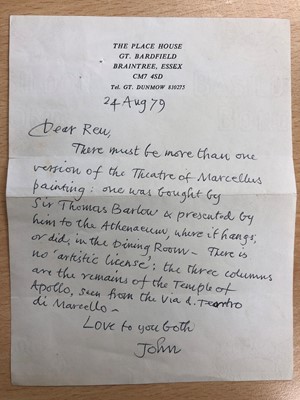 THE PLACE HOUSE
GT. BARDFIELD
BRAINTREE, ESSEX
CM7 4SD
Tel. GT. DUNMOW 810275
24 Aug 79
Dear Reu,
There must be more than one
version of the Theatre of Marcellus
painting: one was bought by
Sir Thomas Barlow & presented by
him to the Athenaeum, where it hangs,
or did, in the Dining Room – There is
no 'artistic license'; the three columns
are the remains of the Temple of
Apollo, seen from the Via d. Teatro
di Marcello –
Love to you both
John